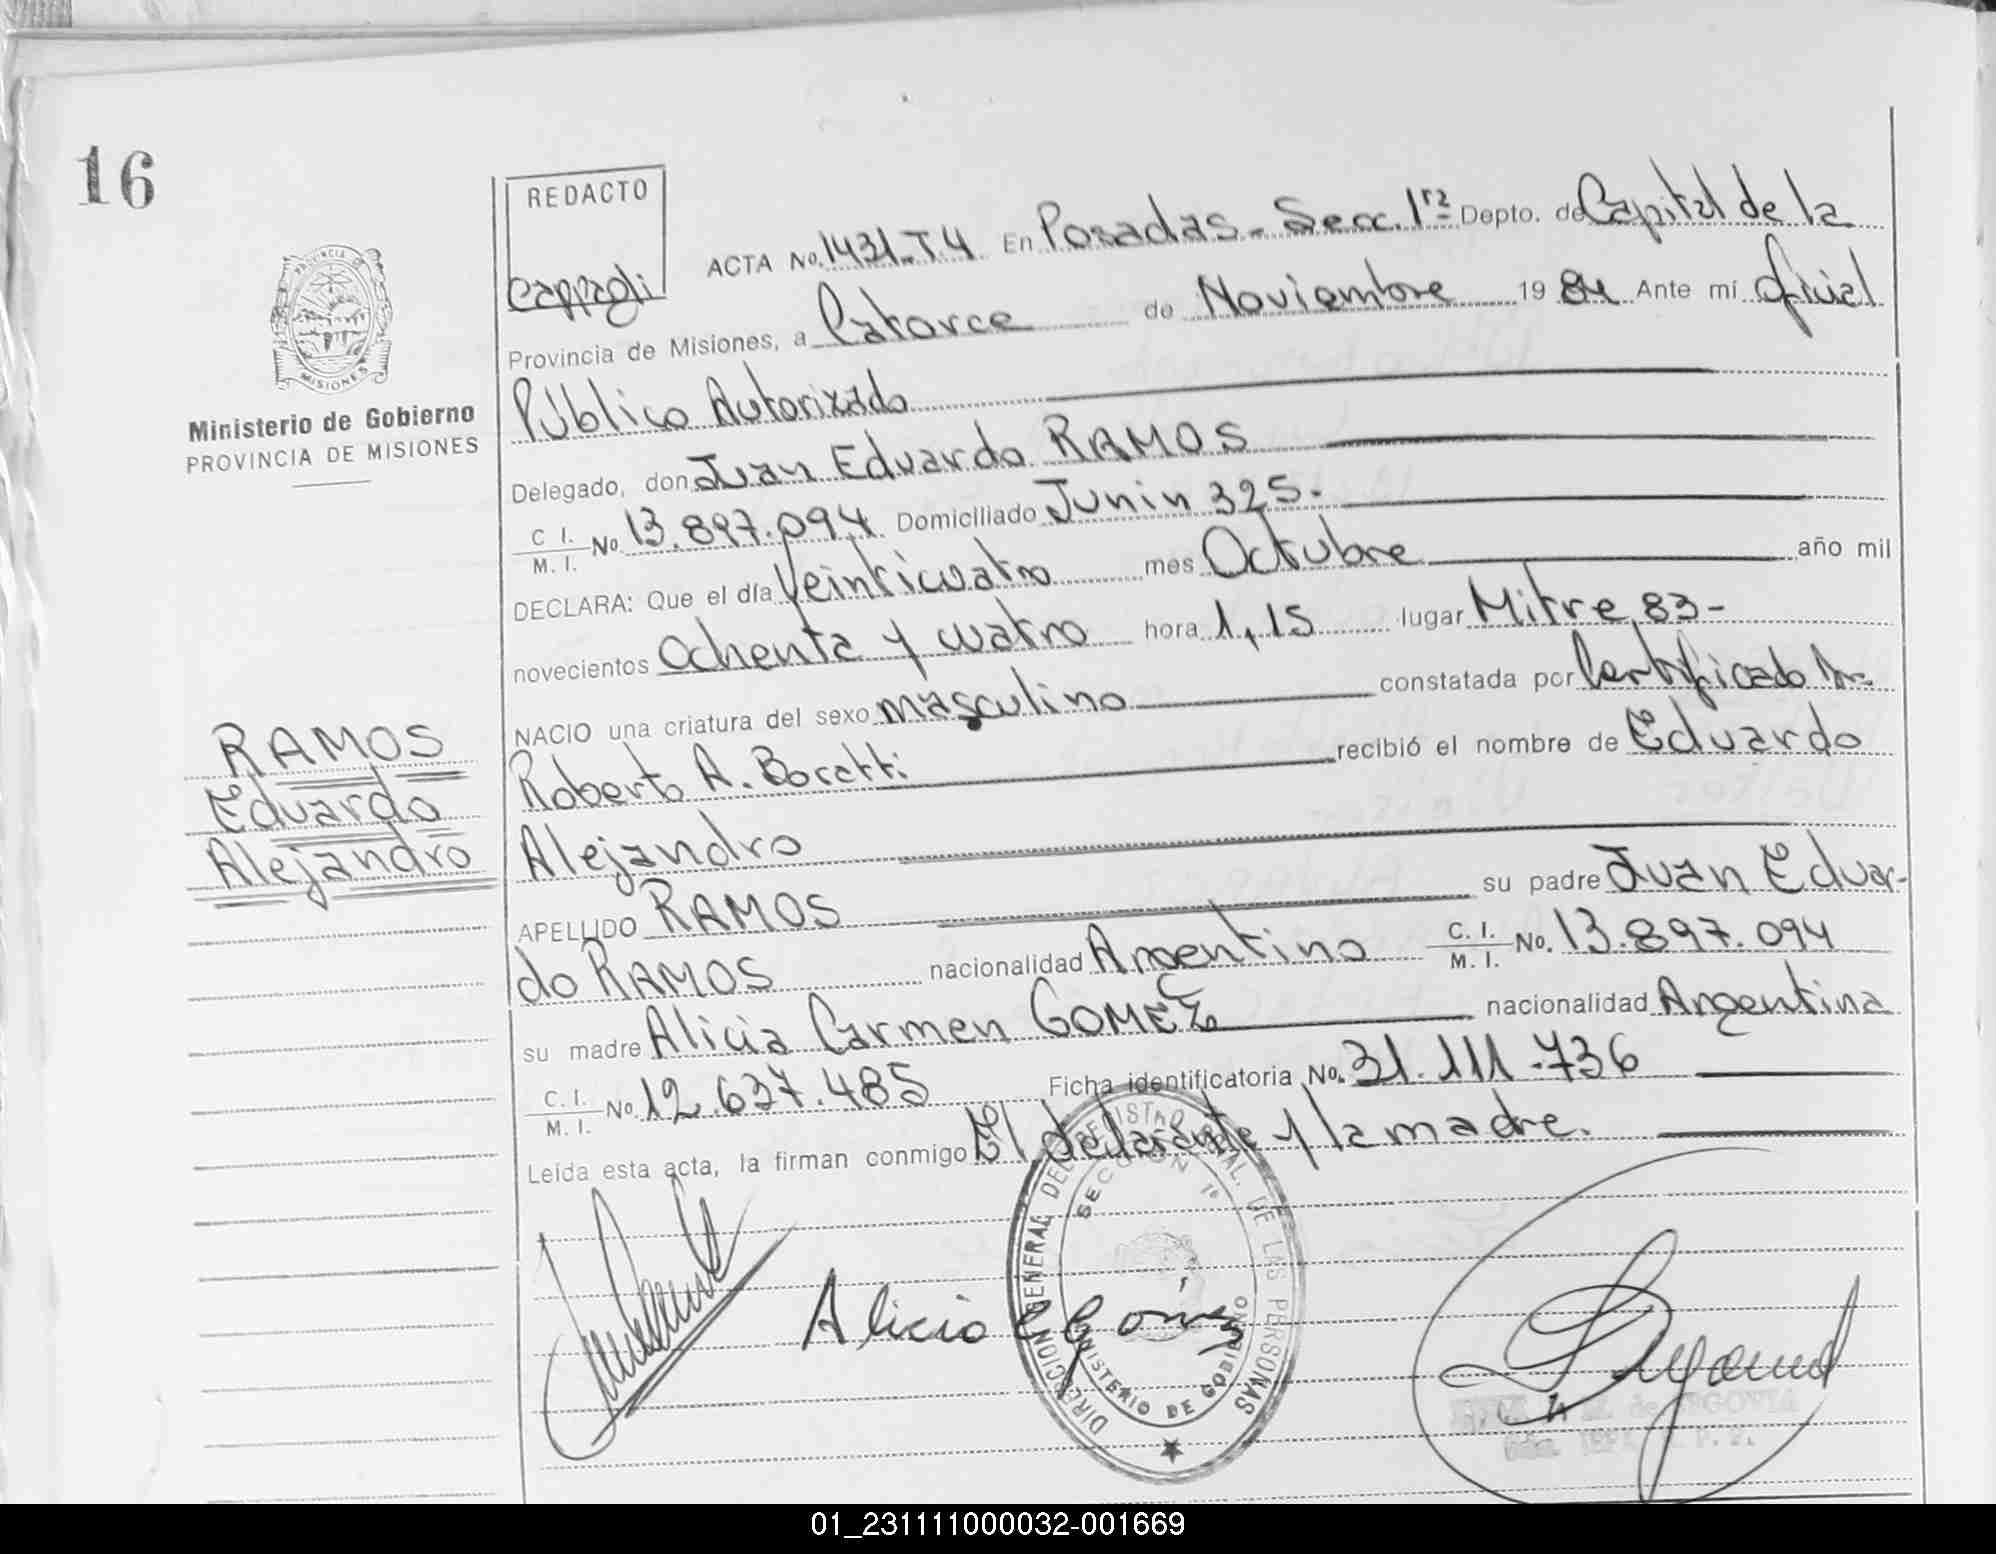 16
REDACTO
Cappagli
PROVINCIA DE
MISIONES
Ministerio de Gobierno
PROVINCIA DE MISIONES
ACTA No. 1431-T4 En Posadas - Secc. 1ra Depto. de Capital de la
Provincia de Misiones, a Catorce de Noviembre 19 84 Ante mí Oficial
Público Autorizado
Delegado, don Juan Eduardo RAMOS
C. I. / M. I. No. 13.897.094 Domiciliado Junin 325.
DECLARA: Que el día Veinticuatro mes Octubre año mil
novecientos Ochenta y cuatro hora 1,15 lugar Mitre 83-
NACIO una criatura del sexo masculino constatada por Certificado Dr.
Roberto A. Bocatti recibió el nombre de Eduardo
Alejandro
APELLIDO RAMOS su padre Juan Eduar-
do RAMOS nacionalidad Argentino C. I. / M. I. No. 13.897.094
su madre Alicia Carmen GOMEZ nacionalidad Argentina
C. I. / M. I. No. 12.637.485 Ficha identificatoria No. 31.111.736
Leída esta acta, la firman conmigo El declarante y la madre.
RAMOS
Eduardo
Alejandro
Alicia C Gómez
DIRECCION GENERAL DEL REGISTRO DE LAS PERSONAS
SECCION 1ª
MINISTERIO DE GOBIERNO
de SEGOVIA
01_231111000032-001669